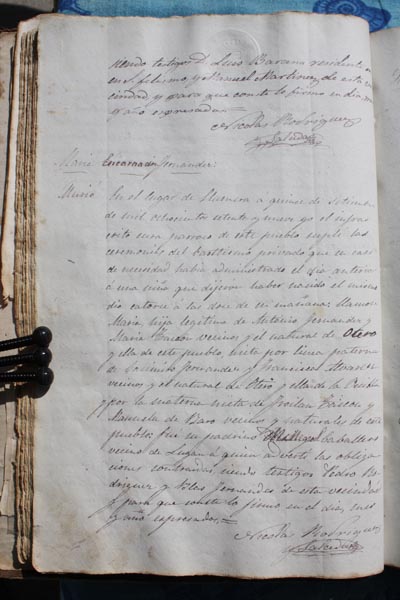 siendo testigos D. Luis Barcena residente
en S. Felismo, y Manuel Martinez de esta ve
cindad y para que conste lo firmo en dia mes
y año espresados
Nicolas Rodriguez
Salcedo
Maria Encarnacion Fernandez
Murió
En el lugar de a quince de Setiembre
de mil ochocientos setenta y nueve yo el infras
crito cura parroco de este pueblo suplí las
ceremonias del bautismo privado que en caso
de necesidad habia administrado el dia anterior
á una niña que dijeron haber nacido el mismo
dia catorce á las doce de su mañana: llamose
Maria hija legitima de Antonio Fernandez y
Maria vecinos y el natural de Otero
y ella de este pueblo, nieta por linea paterna
de Fernandez y Francisca Alvarez
vecinos y el natural de Otero, y ella de la
por la materna nieta de Froilan y
Manuela de Baro vecinos y naturales de este
pueblo: fue su padrino Miguel Caballero
vecino de Lugan á quien advertí las obliga
ciones contraidas siendo testigos Pedro Ro
driguez y Fernandez de esta vecindad
y para que conste lo firmo en el dia, mes
y año espresados
Nicolas Rodriguez
Salcedo